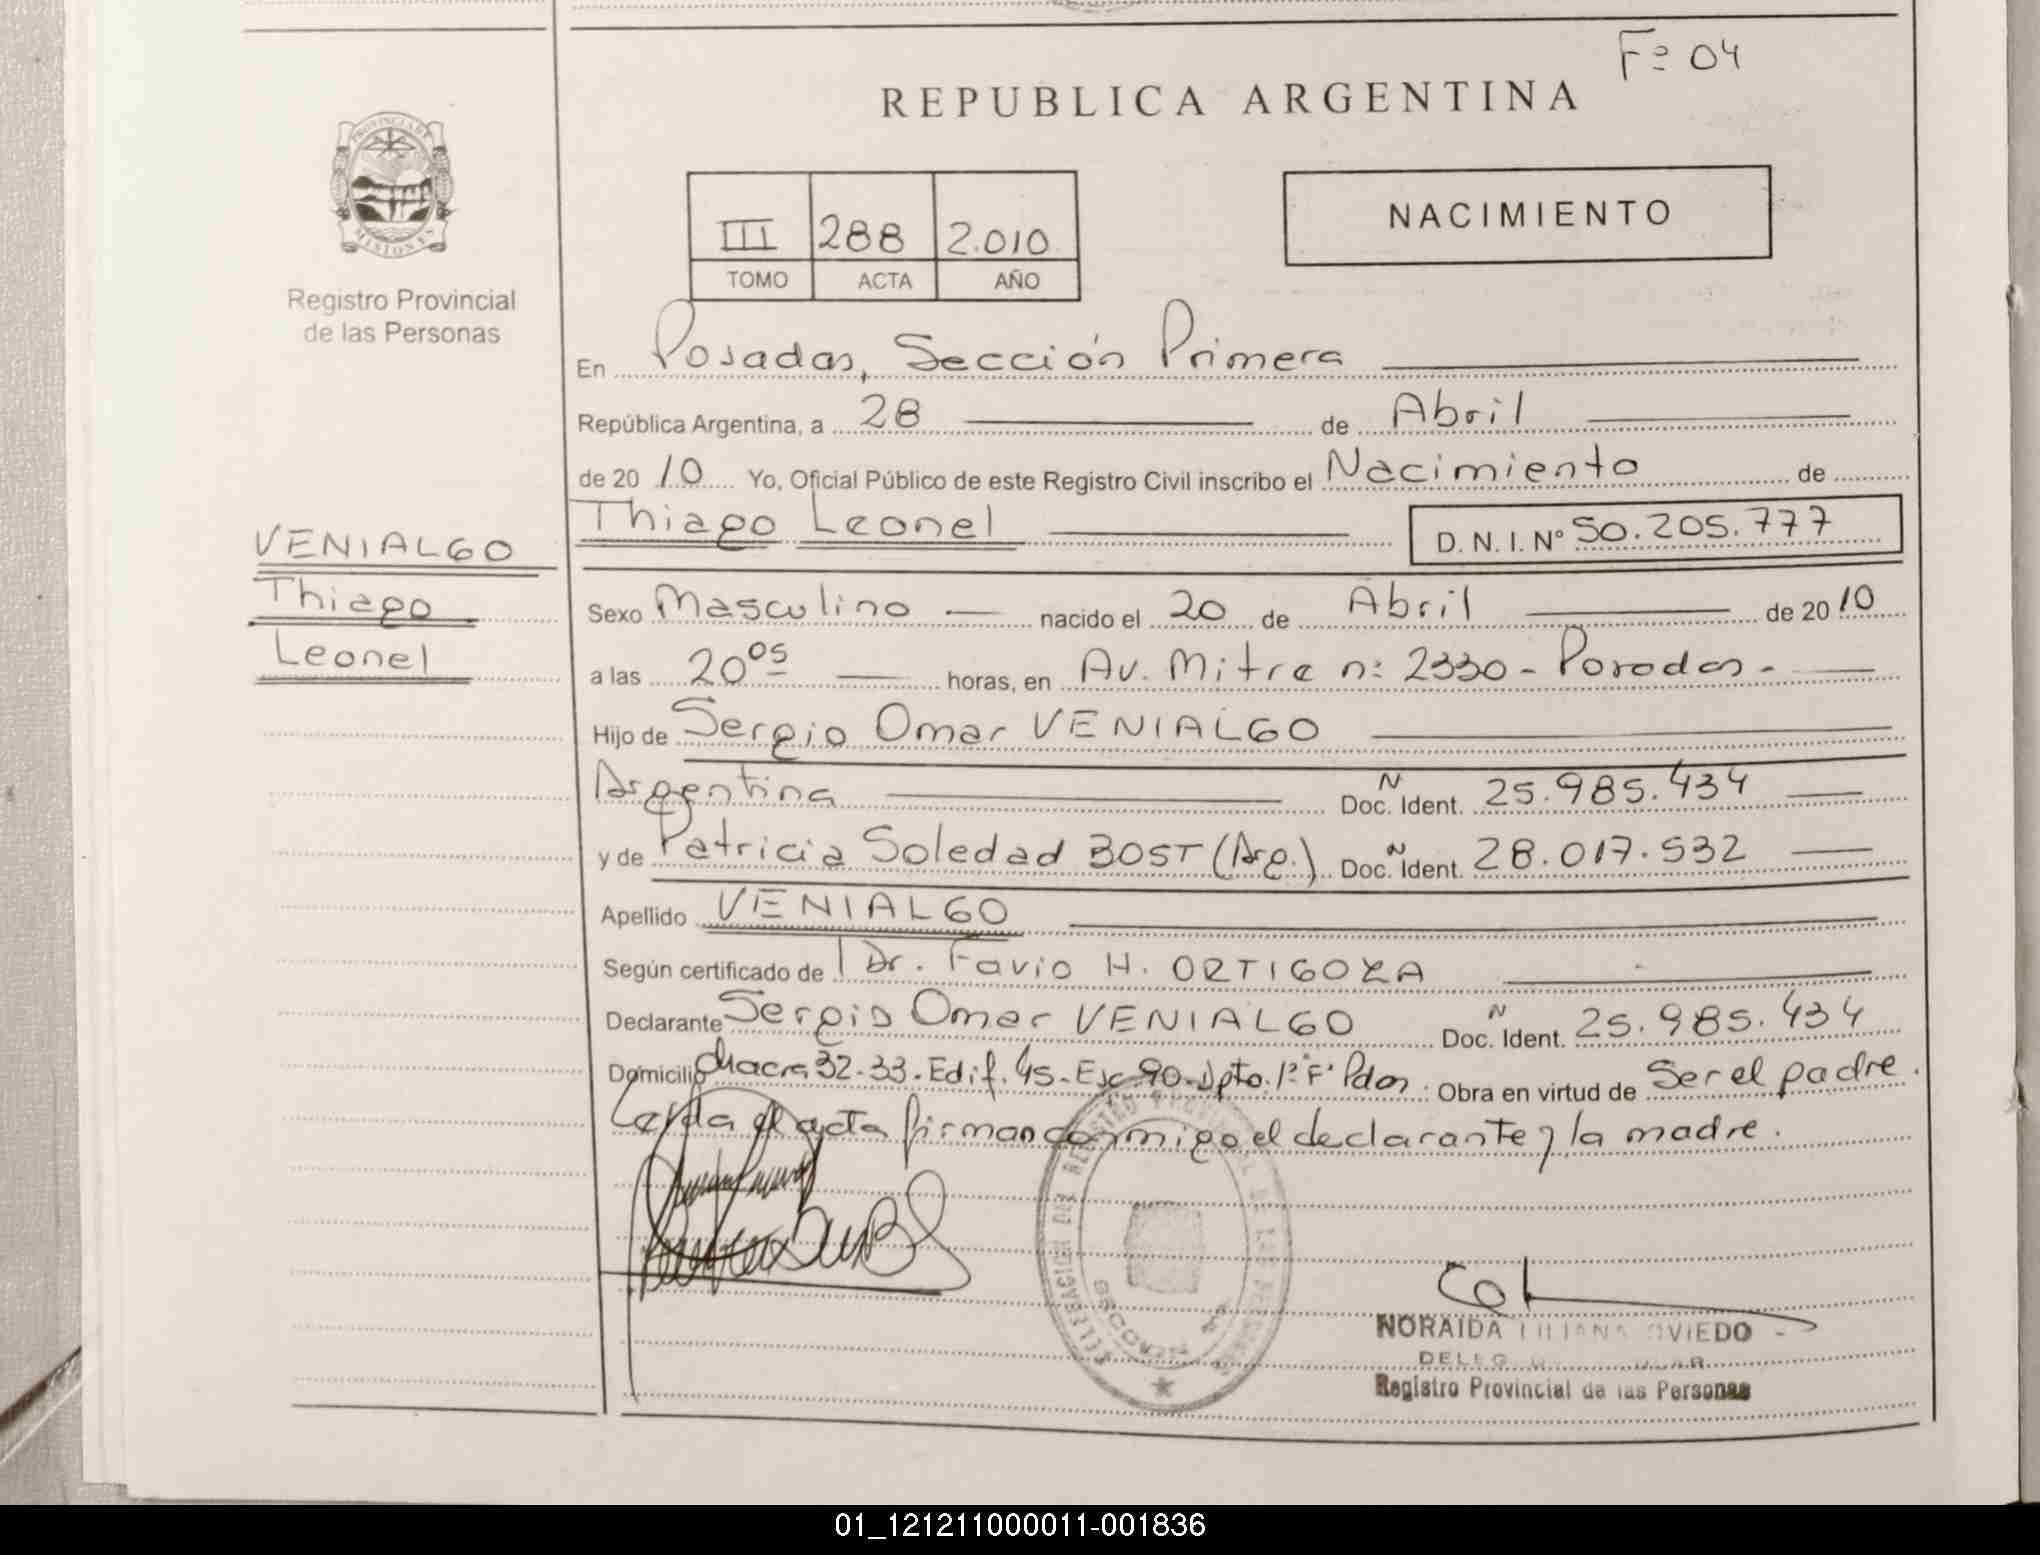 Fº 04
REPUBLICA ARGENTINA
PROVINCIA DE
MISIONES
Registro Provincial
de las Personas
III 288 2.010
TOMO ACTA AÑO
NACIMIENTO
En Posadas, Sección Primera
República Argentina, a 28 de Abril
de 2010 Yo, Oficial Público de este Registro Civil inscribo el Nacimiento de
Thiago Leonel D. N. I. Nº 50.205.777
VENIALGO
Thiago
Leonel
Sexo Masculino nacido el 20 de Abril de 2010
a las 20 05 horas, en Av. Mitre nº 2330 - Posadas -
Hijo de Sergio Omar VENIALGO
Argentina N Doc. Ident. 25.985.434
y de Patricia Soledad BOST (Arg.) N Doc. Ident. 28.017.532
Apellido VENIALGO
Según certificado de Dr. Favio H. ORTIGOZA
Declarante Sergio Omar VENIALGO N Doc. Ident. 25.985.434
Domicilio Chacra 32-33. Edif. 45. Esc. 90. Dpto. 1º F. Pdas. Obra en virtud de Ser el padre.
Leída el acta firman conmigo el declarante y la madre.
DELEGACIÓN DEL REGISTRO PROVINCIAL DE LAS PERSONAS
NORAIDA LILIANA OVIEDO
Registro Provincial de las Personas
01_121211000011-001836